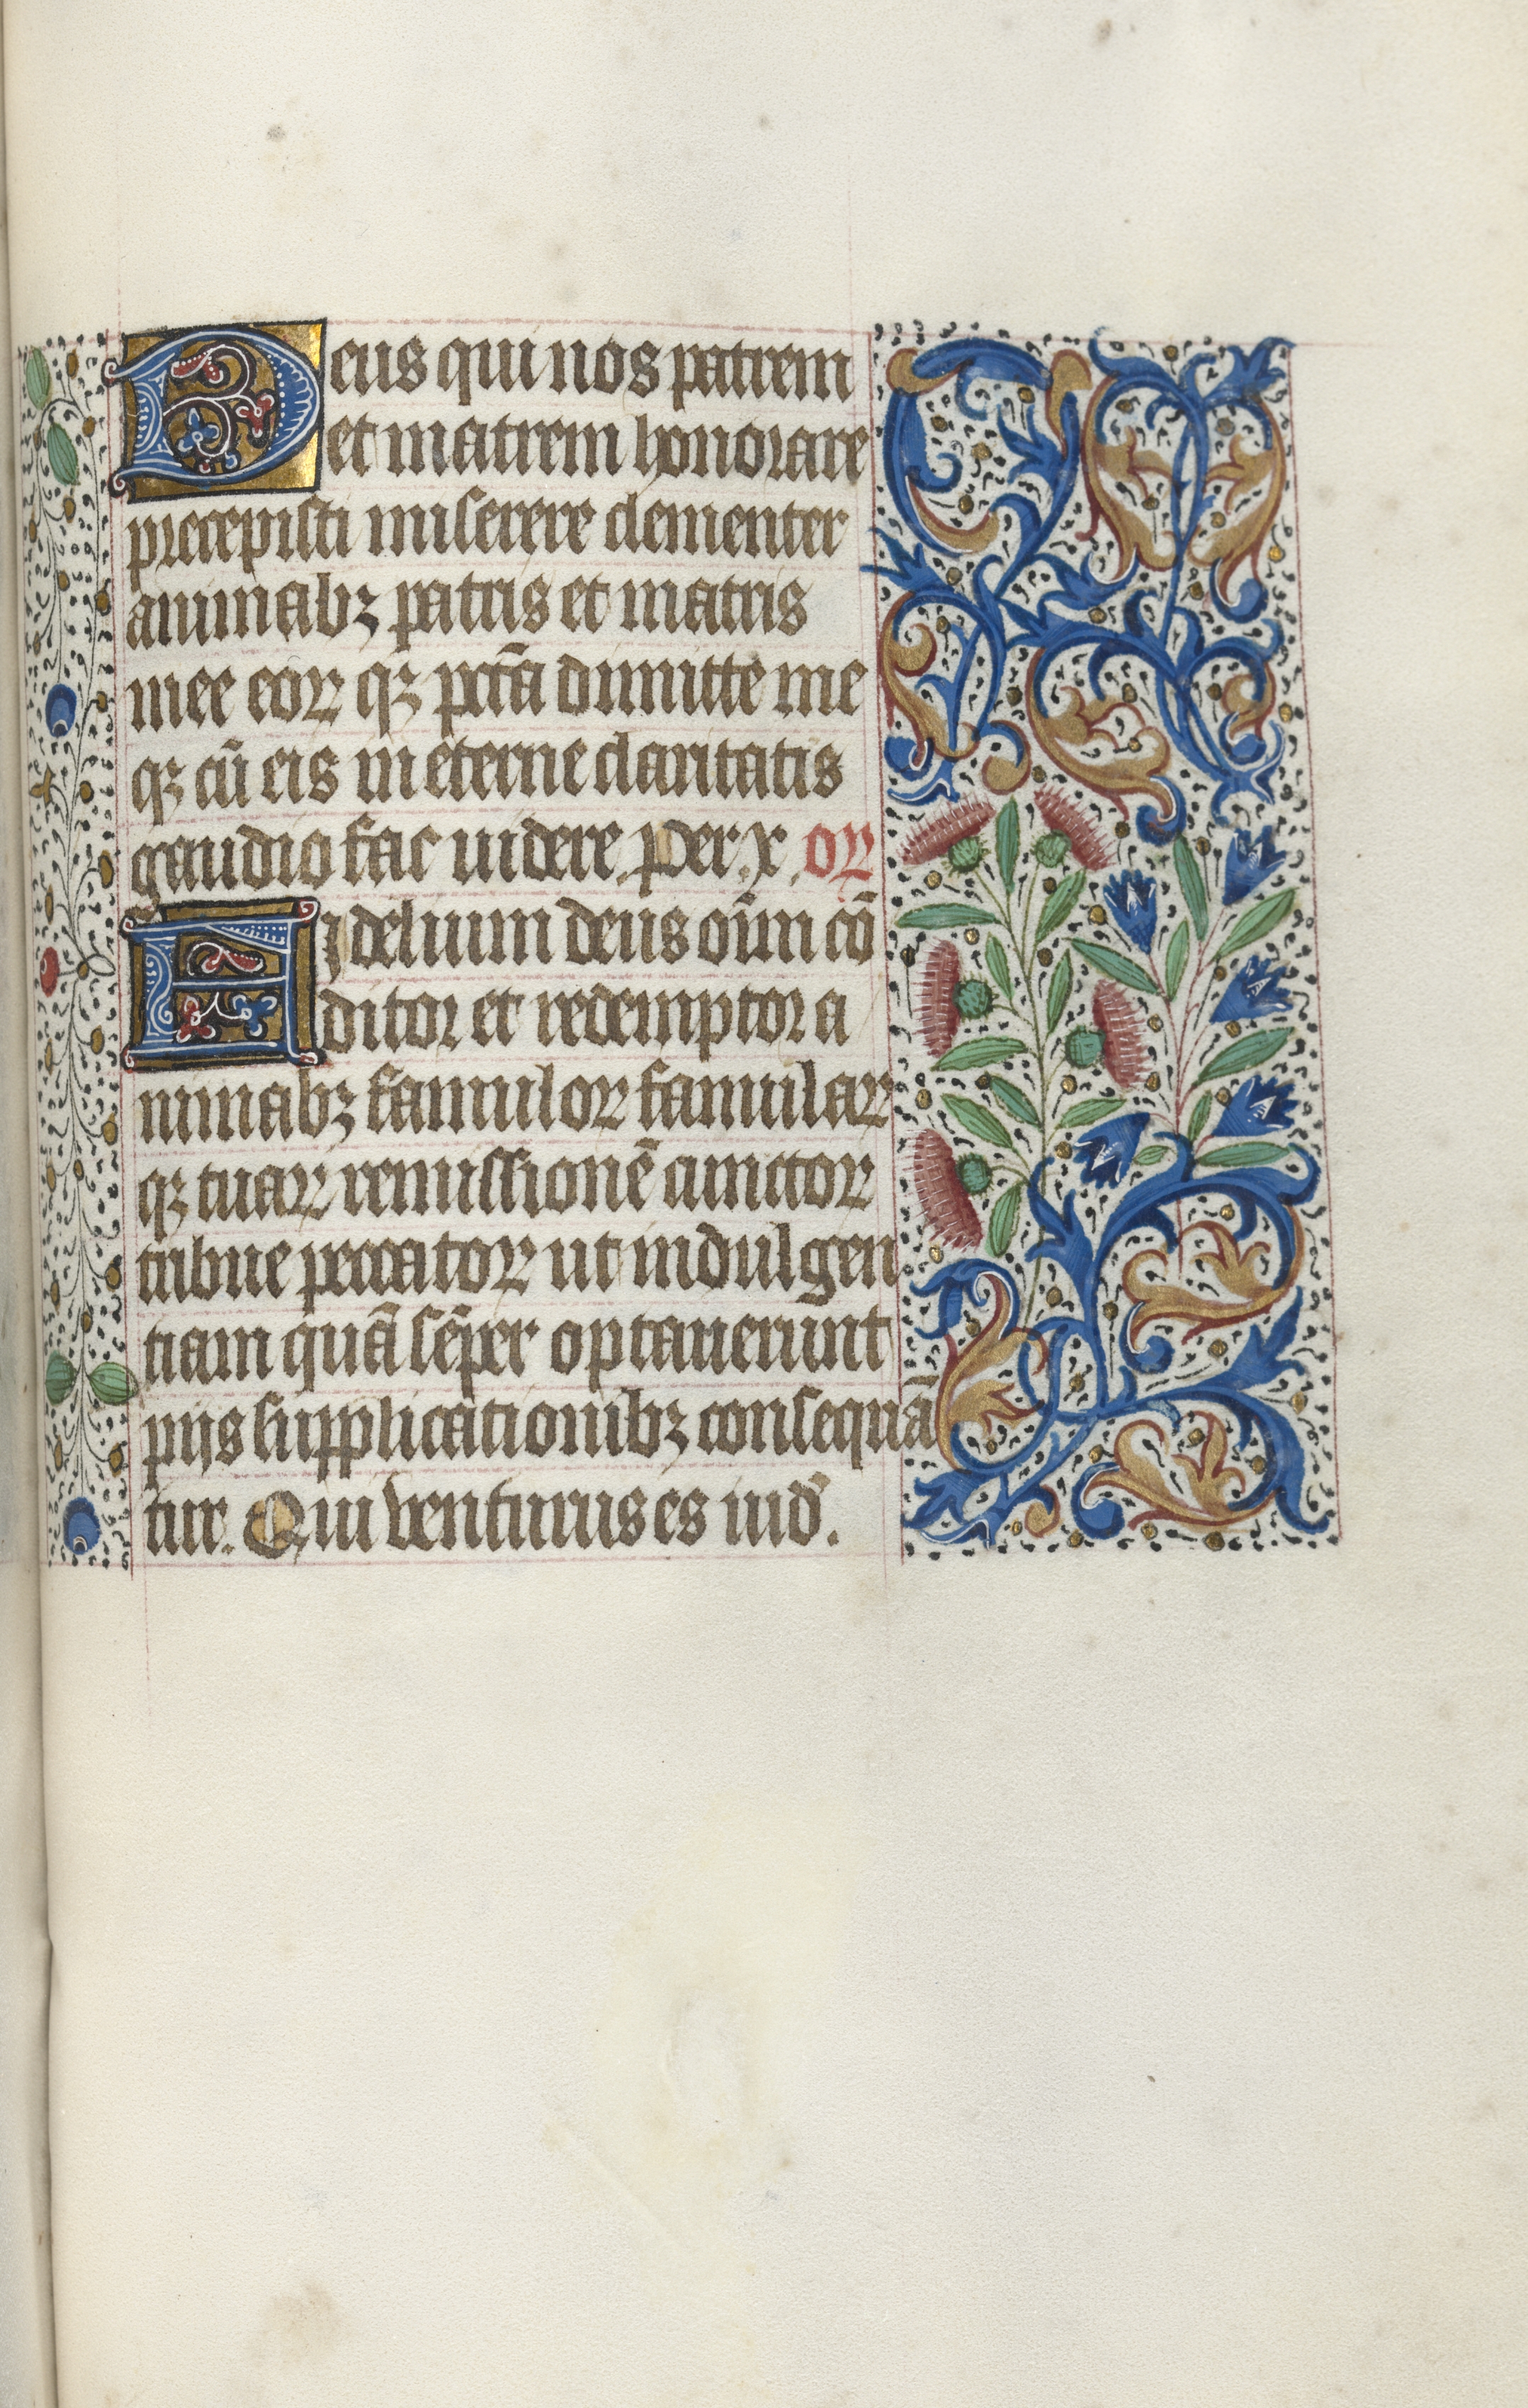 Deus qui nos patrem
et matrem honorare
precepisti miserere clementer
animabꝫ patris et matris
mee eoꝝ qꝫ pctā dimitte me
qꝫ cū eis in eterne claritatis
gaudio fac uidere. Per. x. oꝝ
Fidelium deus oīm cō
ditor et redemptor a
nimabꝫ famuloꝝ famulaꝝ
qꝫ tuaꝝ remissionē cunctoꝝ
tribue peccatoꝝ ut indulgen
tiam quā sēper optauerūnt
pijs supplicationibꝫ consequā
tur. Qui venturus es iud̄.